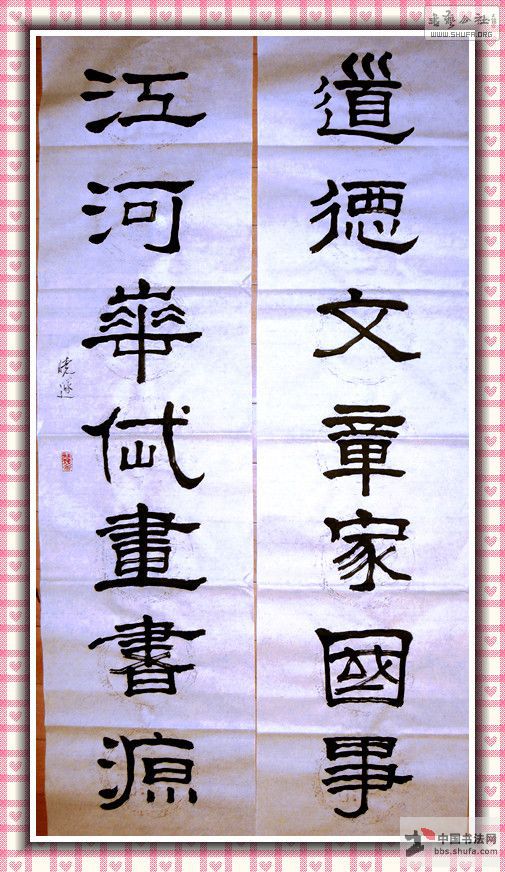 道德文章家國事
江河華岱畫書源
WWW.SHUFA.ORG
中国书法网
bbs.shufa.com